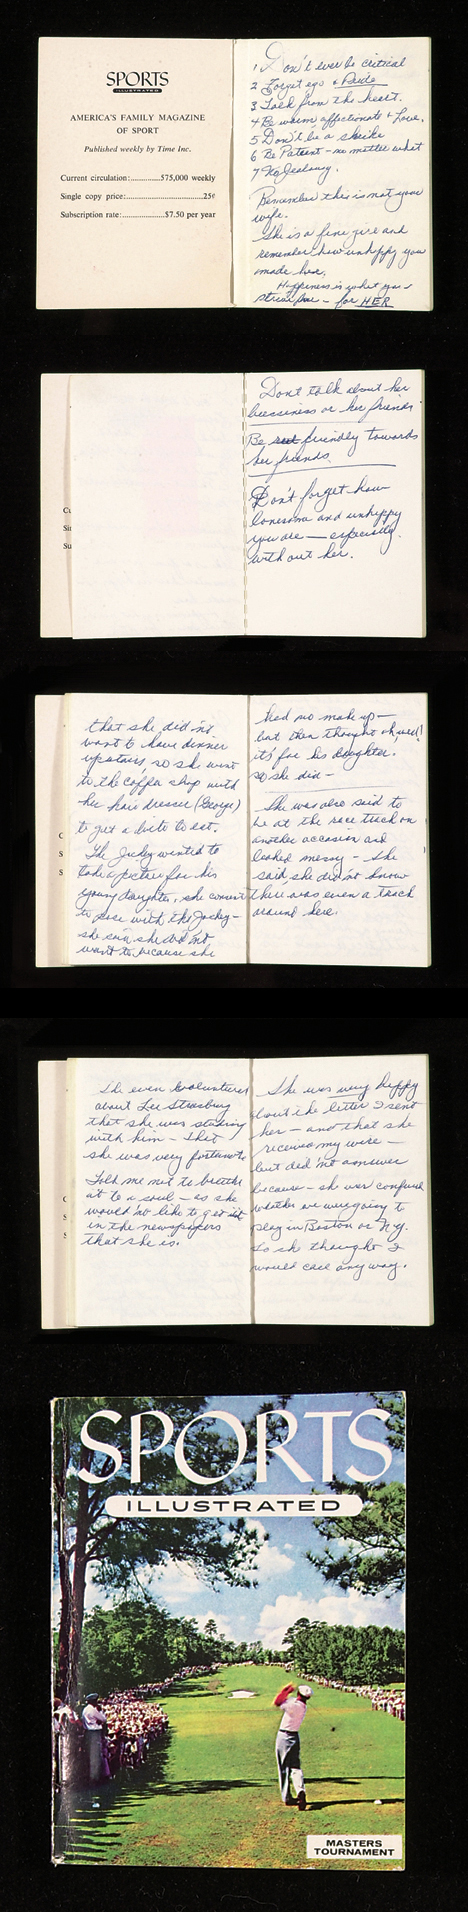 SPORTS
ILLUSTRATED
AMERICA'S FAMILY MAGAZINE
OF SPORT
Published weekly by Time Inc.
Current circulation:..............575,000 weekly
Single copy price:.......................25¢
Subscription rate:..............$7.50 per year
1 Don't ever be critical
2 Forget ego & Pride
3 Talk from the heart.
4 Be warm affectionate & Love.
5 Don't be a
6 Be Patient - no matter what
7 No Jealousy.
Remember this is not your
wife.
She is a fine girl and
remember how unhappy you
made her.
Happiness is what you
strive for - for HER
Don't talk about her
bussiness or her friends
Be friendly towards
her friends.
Don't forget how
lonesome and unhappy
you are - especially
without her.
that she did n't
want to have dinner
upstairs, so she went
to the coffee shop with
her hair dresser (George)
to get a bite to eat.
The Jockey wanted to
take a picture for his
young daughter, she
to pose with the Jockey -
she said she did not
want to because she
had no make up -
but then thought oh well!
it's for his daughter.
so she did -
She was also said to
be at the race track on
another occasion and
looked messy - She
said she did not know
there was even a track
around here.
She even
about Lee Strasburg
that she was studying
with him - That
she was very fortunate
Told me not to breathe
it to a soul - as she
would 'no like to get
in the newspapers
that she is.
She was very happy
about the letter I sent
her - and that she
received my wire -
but did 'nt answer
because - she was confused
whether we were going to
stay in Boston or N.y.
So she thought I
would call any way.
SPORTS
ILLUSTRATED
MASTERS
TOURNAMENT